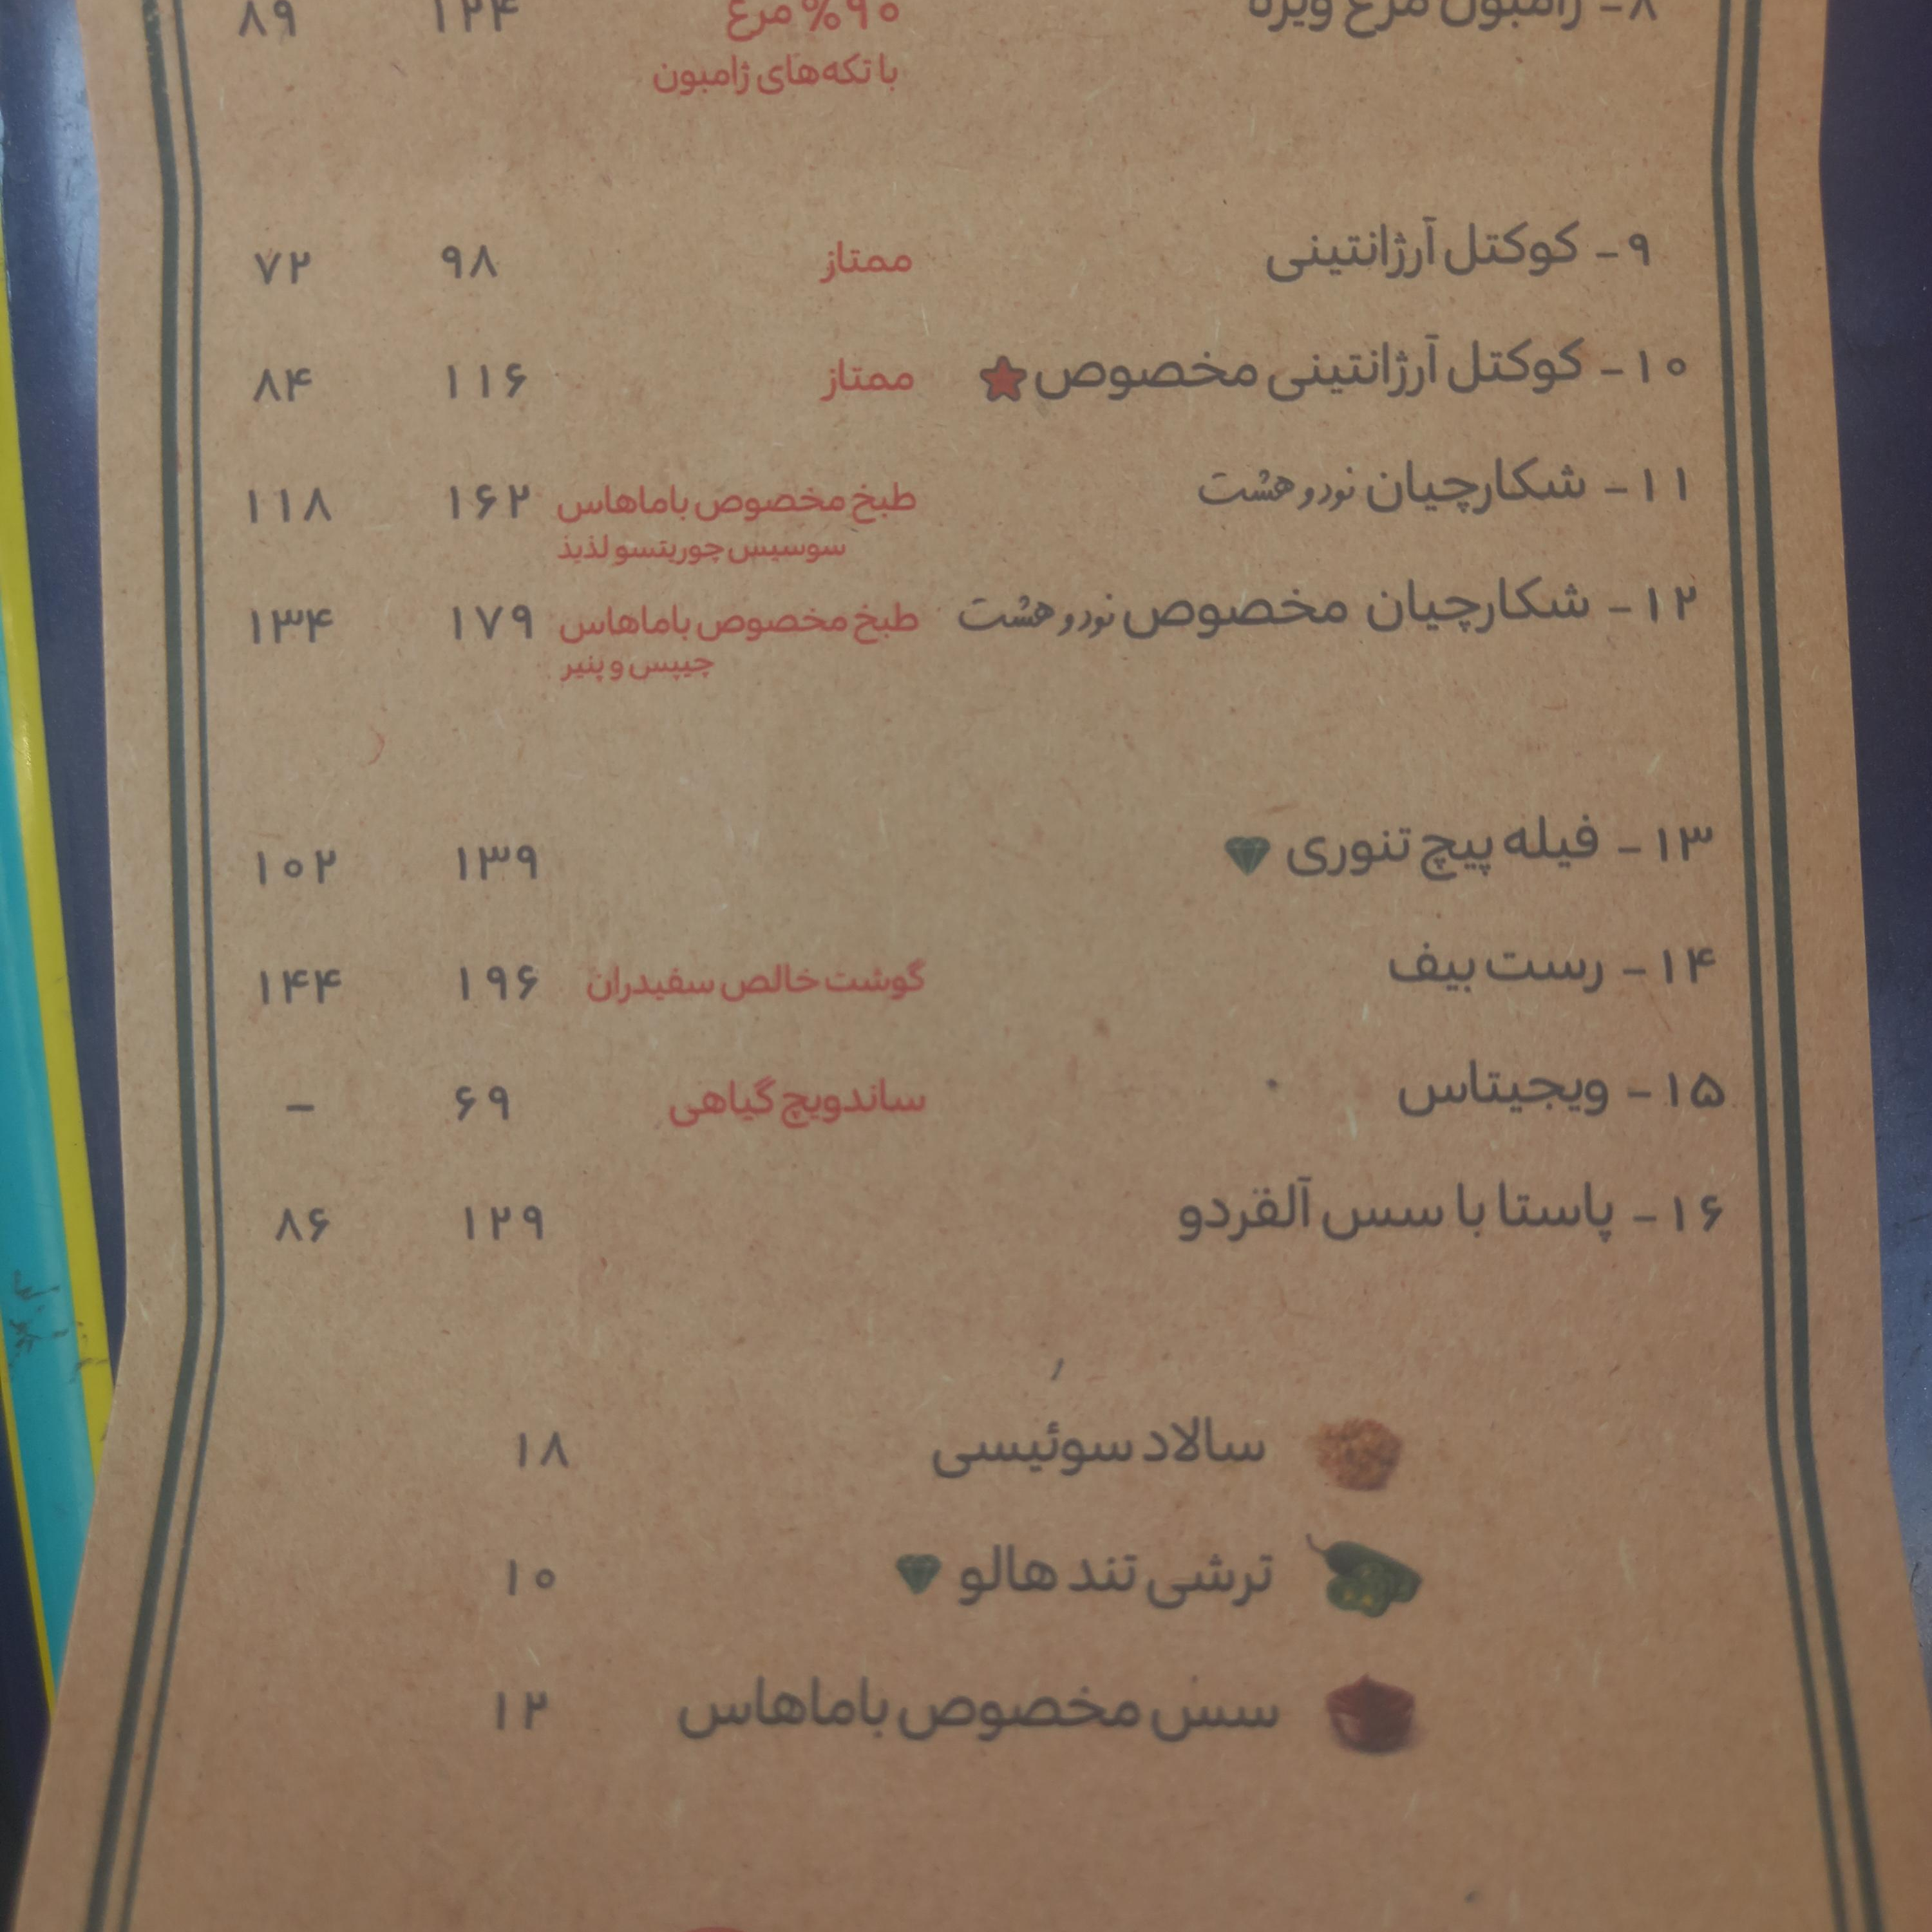 ۸- ژامبون مرغ ویژه ۹۰% مرغ ۱۲۴ ۸۹
با تکه‌های ژامبون
۹- کوکتل آرژانتینی ممتاز ۹۸ ۷۲
۱۰- کوکتل آرژانتینی مخصوص ممتاز ۱۱۶ ۸۴
۱۱- شکارچیان نود و هشت طبخ مخصوص باماهاس ۱۶۲ ۱۱۸
سوسیس چوریتسو لذیذ
۱۲- شکارچیان مخصوص نود و هشت طبخ مخصوص باماهاس ۱۷۹ ۱۳۴
چیپس و پنیر
۱۳- فیله پیچ تنوری ۱۳۹ ۱۰۲
۱۴- رست بیف گوشت خالص سفیدران ۱۹۶ ۱۴۴
۱۵- ویجیتاس ساندویچ گیاهی ۶۹ -
۱۶- پاستا با سس آلفردو ۱۲۹ ۸۶
سالاد سوئیسی ۱۸
ترشی تند هالو ۱۰
سس مخصوص باماهاس ۱۲